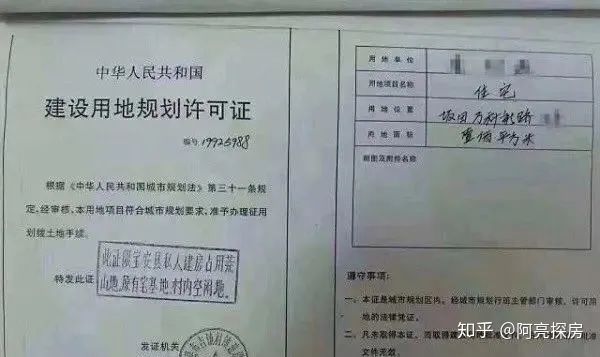 中华人民共和国
建设用地规划许可证
编号 19925988
根据《中华人民共和国城市规划法》第三十一条规
定,经审核,本用地项目符合城市规划要求,准予办理征用
划拨土地手续。
特发此证
此证限宝安县私人建房占用荒
山地,原有宅基地,村内空闲地。
发证机关
用地单位
用地项目名称
住宅
用地位置
坂田万科彩
用地面积
壹佰平方米
附图及附件名称
遵守事项:
一、本证是城市规划区内,经城市规划行政主管部门审核,许可用
地的法律凭证。
二、凡未取得本证,而取得建
文件无效。
知乎 @阿亮探房